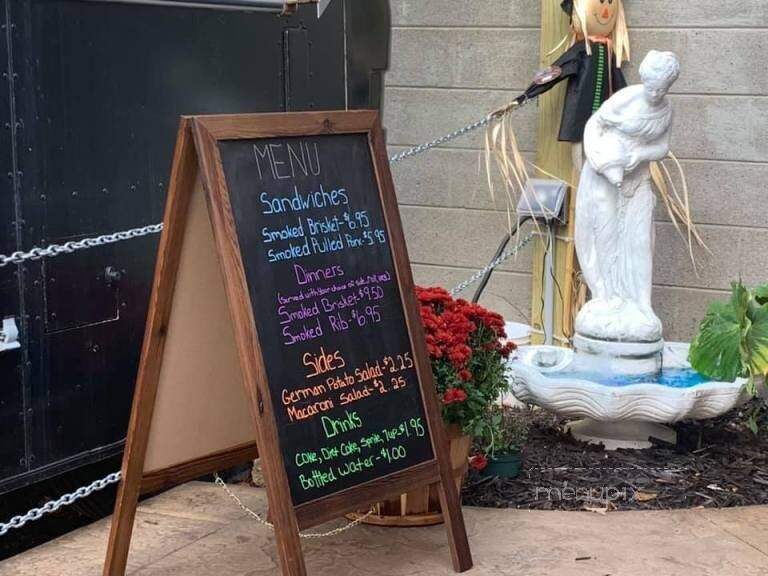 MENU
Sandwiches
Smoked Brisket-$6.95
Smoked Pulled Pork-$5.95
Dinners
(Served with your choice of side,
Smoked Brisket-$9.50
Smoked Rib-$6.95
Sides
German Potato Salad-$2.25
Macaroni Salad-$2.25
Drinks
Coke, Diet Coke, Sprite, 7up-$1.95
Bottled Water-$1.00
menupix